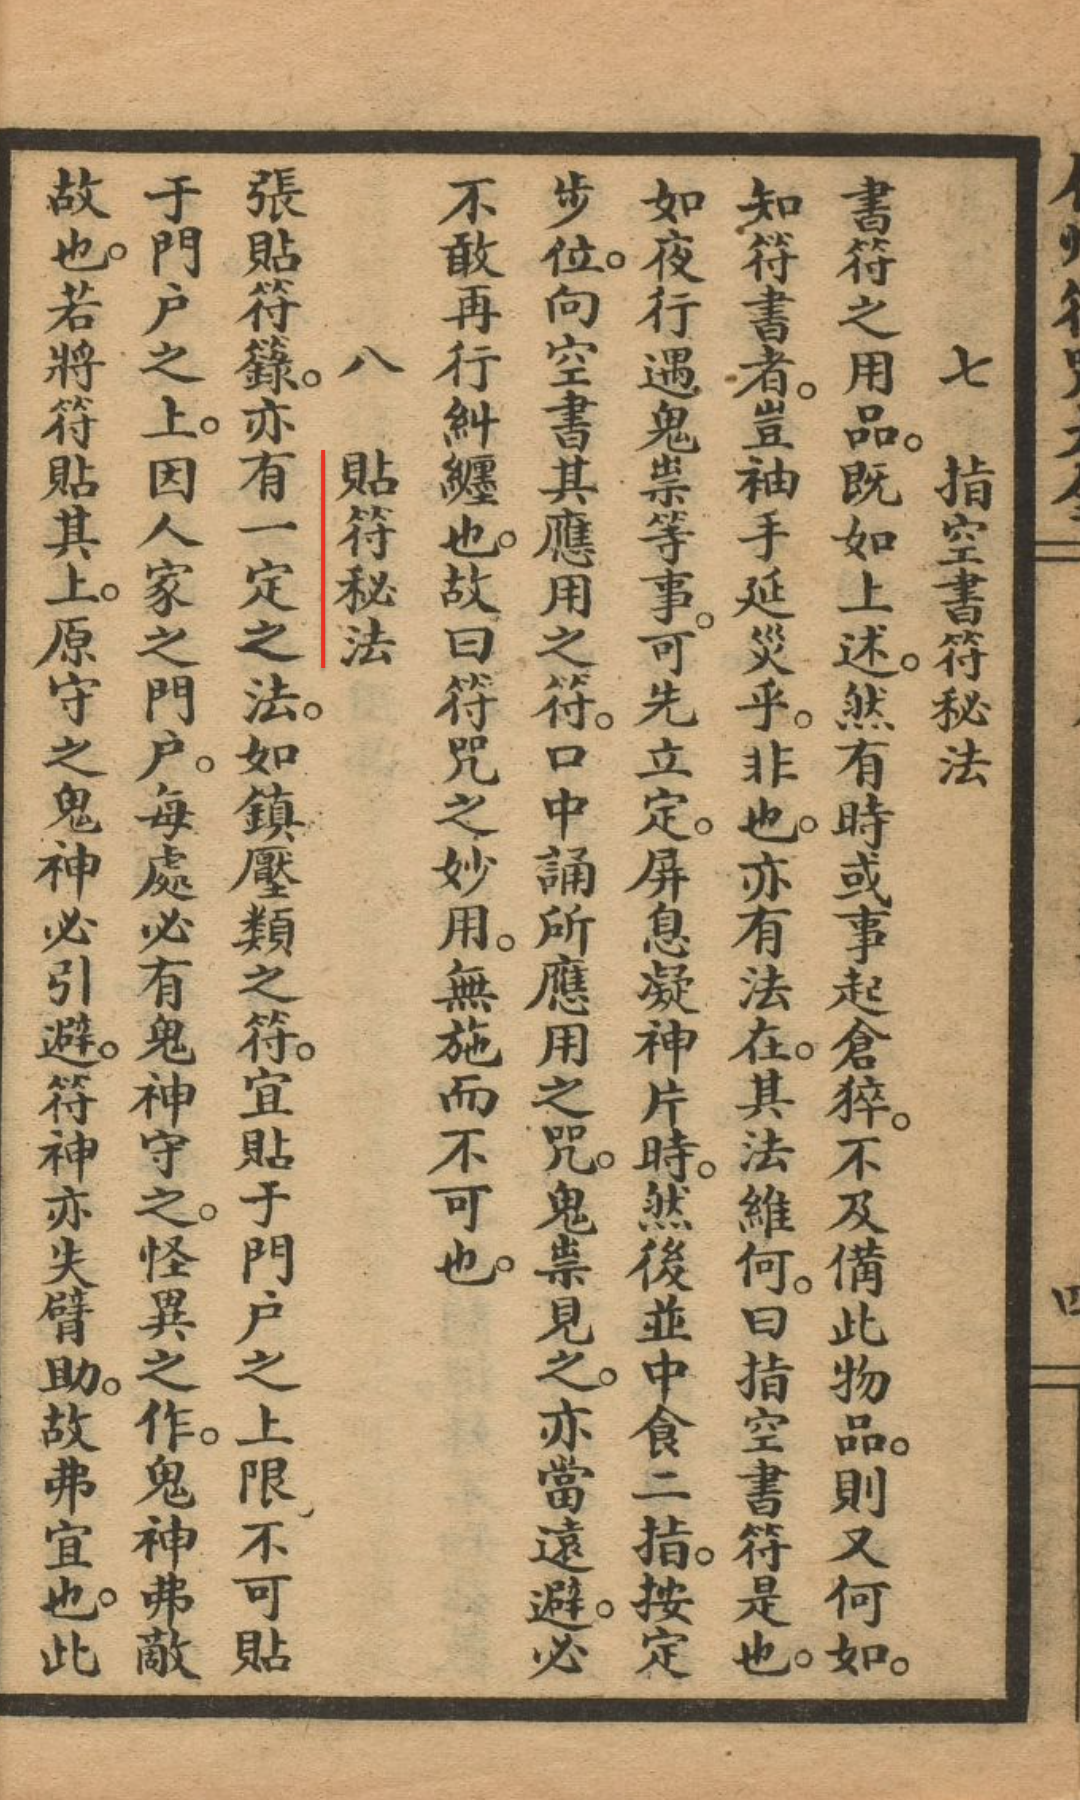 七　指空書符秘法
書符之用品。既如上述。然有時或事起倉猝。不及備此物品。則又何如。
知符書者。豈袖手延災乎。非也。亦有法在。其法維何。曰指空書符是也。
如夜行遇鬼祟等事。可先立定。屏息凝神片時。然後並中食二指。按定
步位。向空書其應用之符。口中誦所應用之咒。鬼祟見之。亦當遠避。必
不敢再行糾纏也。故曰符咒之妙用。無施而不可也。
八　貼符秘法
張貼符籙。亦有一定之法。如鎮壓類之符。宜貼于門户之上限、不可貼
于門户之上。因人家之門户。每處必有鬼神守之。怪異之作。鬼神弗敵
故也。若將符貼其上。原守之鬼神必引避。符神亦失臂助。故弗宜也。此
四